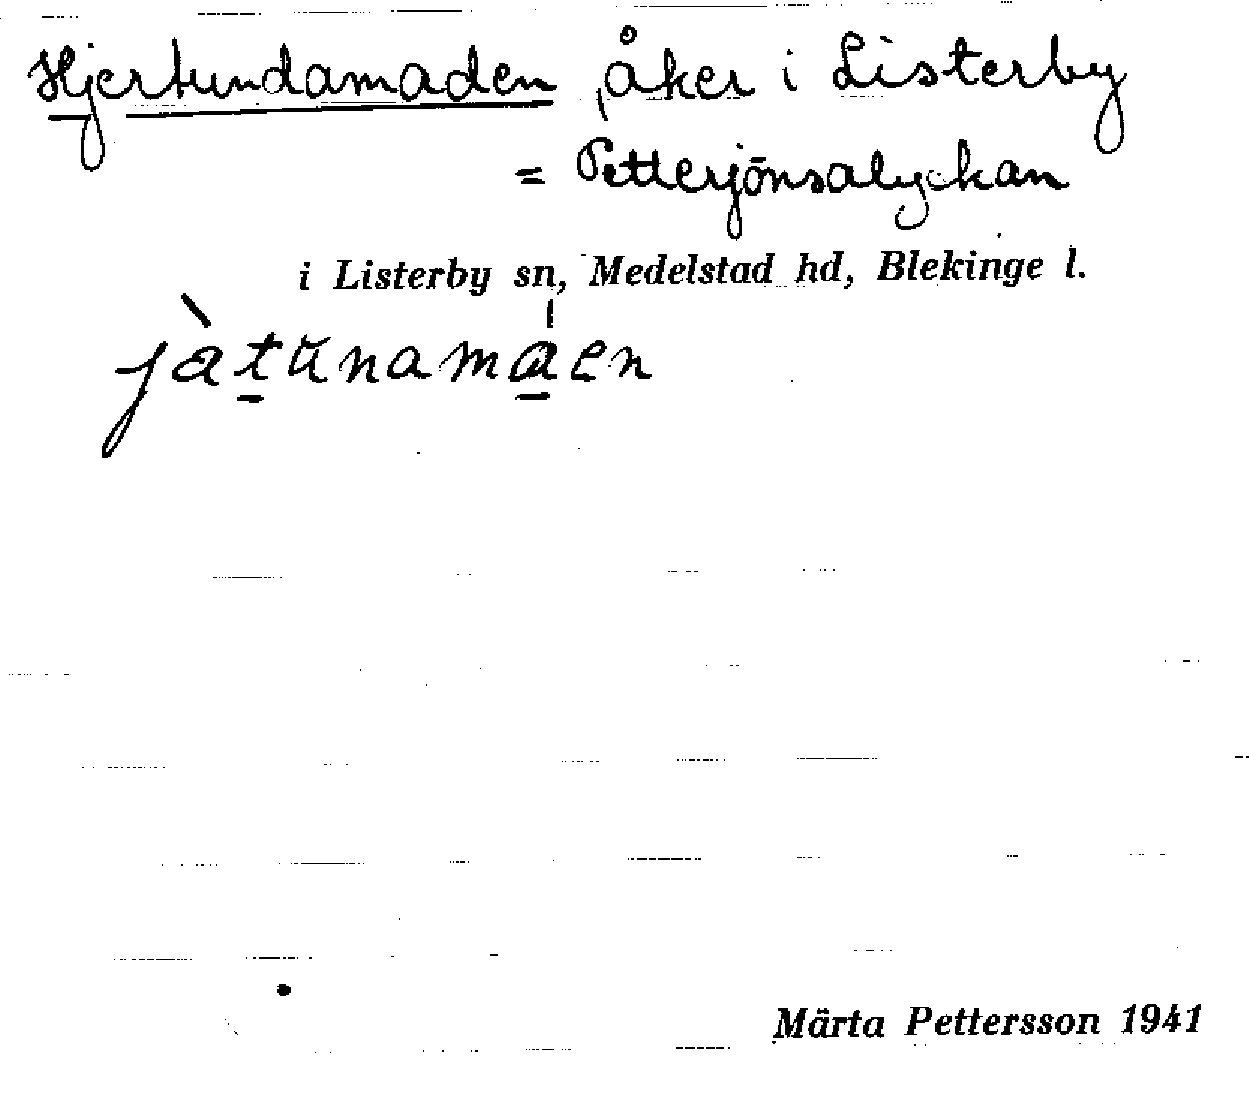 Hjertundamaden, åker i Listerby
= Petterjönsalyckan
i Listerby sn, Medelstad hd, Blekinge l.
jàtŭnamaen
Märta Pettersson 1941